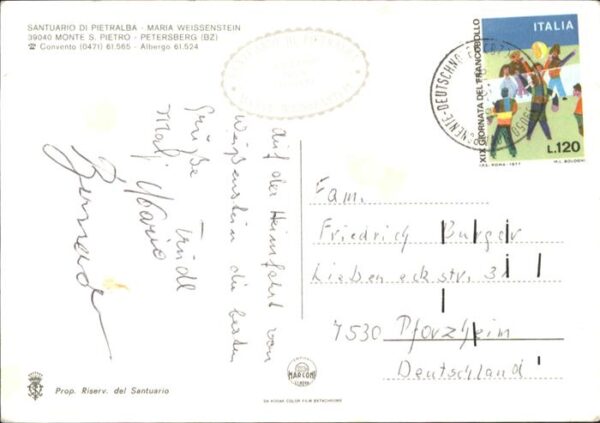 SANTUARIO DI PIETRALBA - MARIA WEISSENSTEIN
39040 MONTE S. PIETRO - PETERSBERG (BZ)
☎ Convento (0471) 61.565 - Albergo 61.524
Auf der Heimfahrt von
Weißenstein die besten
Grüße Trudl
Mario
ITALIA
XIX GIORNATA DEL FRANCOBOLLO
L.120
I.P.S. ROMA-1977
M.L. BOLOGNI
Fam.
Friedrich Burger
Liebeneckstr. 31
7530 Pforzheim
Deutschland
MARCONI
Prop. Riserv. del Santuario
ON KODAK COLOR FILM EKTACHROME